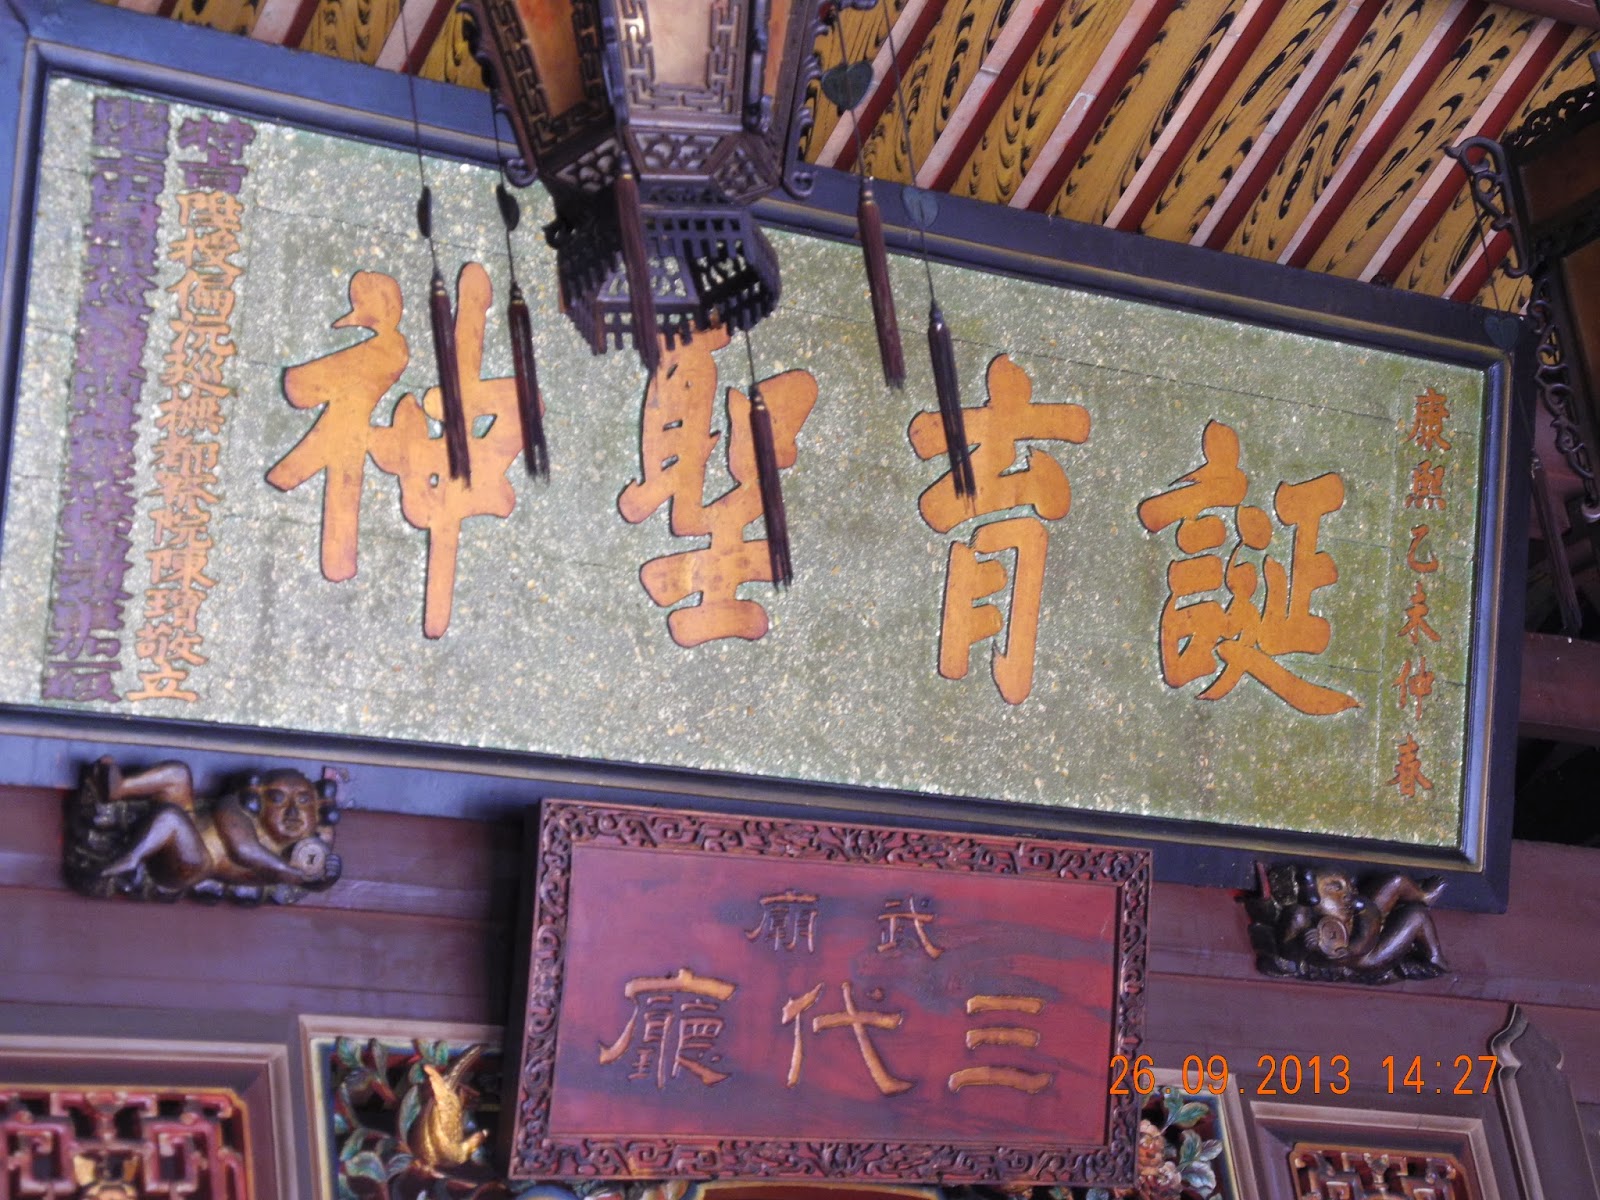 康熙乙未仲春
誕育聖神
特旨陞授偏沅巡撫都察院陳璸敬立
武廟
三代廳
26.09.2013 14:27